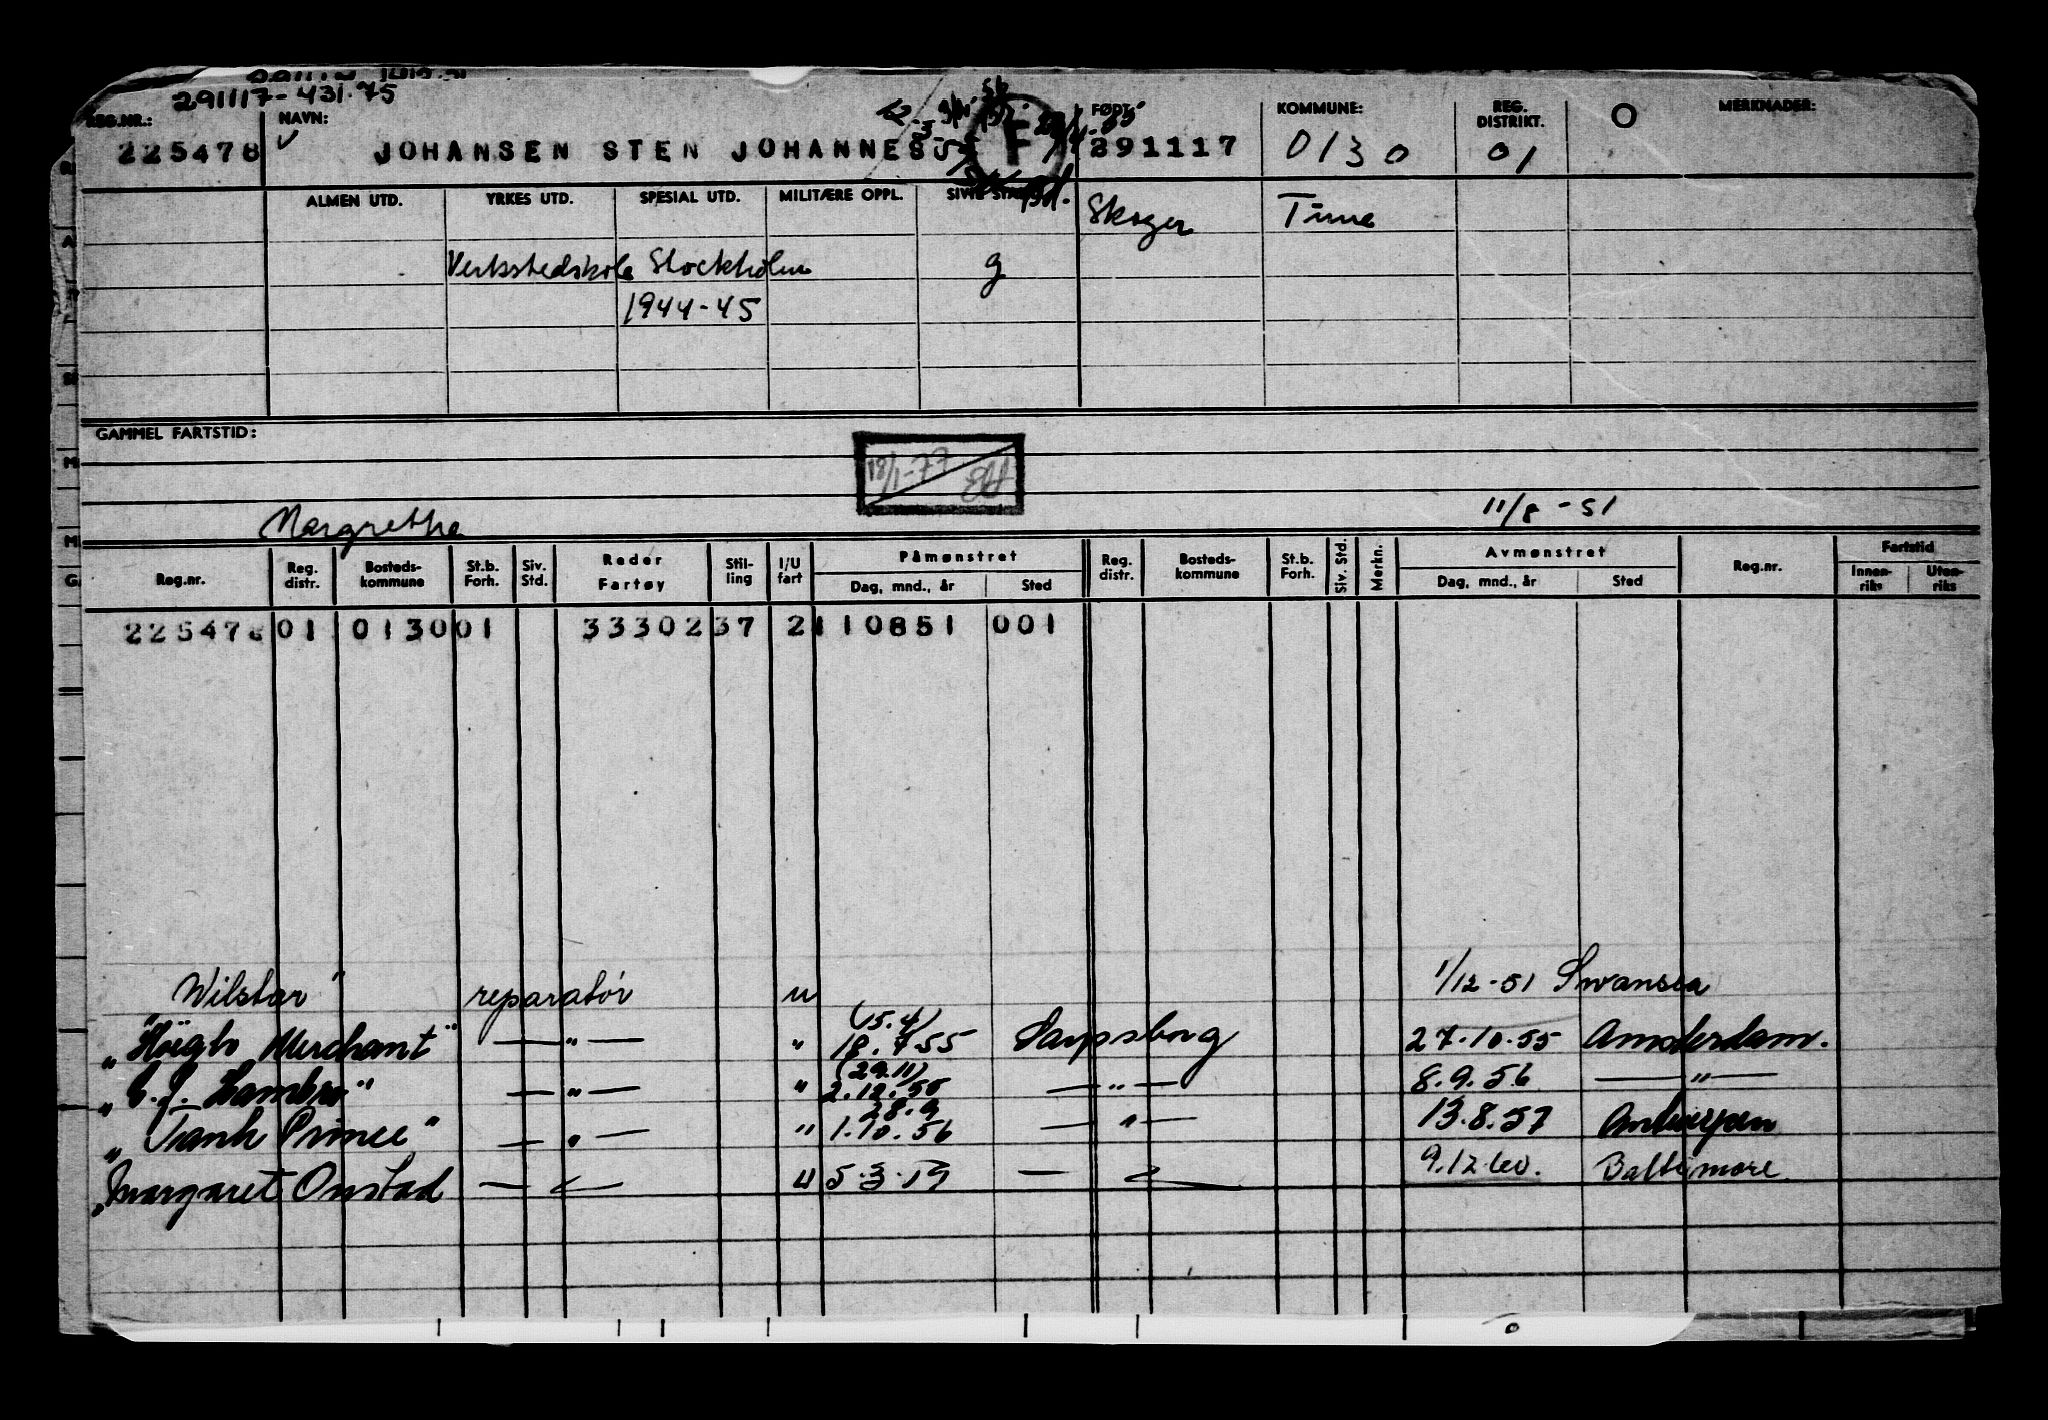 291117-431.75
REG.NR.: NAVN: FØDT: KOMMUNE: REG. DISTRIKT. O MERKNADER:
225478 JOHANSEN STEN JOHANNES F 291117 0130 01
ALMEN UTD. YRKES UTD. SPESIAL UTD. MILITÆRE OPPL. SIVIL
Skoger Tune
Verkstedskole Stockholm g
1944-45
GAMMEL FARTSTID:
18/1-77
11/8-51
Margrethe
Reg.nr. Reg. distr. Bosteds-kommune St.b. Forh. Siv. Std. Reder Fartøy Stil-ling I/U fart Påmønstret Dag, mnd., år Sted Reg. distr. Bosteds-kommune St.b. Forh. Siv. Std. Merkn. Avmønstret Dag, mnd., år Sted Reg.nr. Fartstid Innen-riks Uten-riks
225478 01 0130 01 33302 37 2 110851 001
"Wilstar" reparatør u 1/12-51 Swansea
(15.4)
"Höegh Merchant" —"— " 18.4.55 Sarpsborg 27.10.55 Amsterdam.
(29.11)
"C.J. Hambro" —"— " 2.12.55 —"— 8.9.56 —"—
28.9
"Tank Prince" —"— " 1.10.56 —"— 13.8.57 Antwerpen
"Margaret Onstad —"— " 5.3.19 —"— 9.12.60. Baltimore.